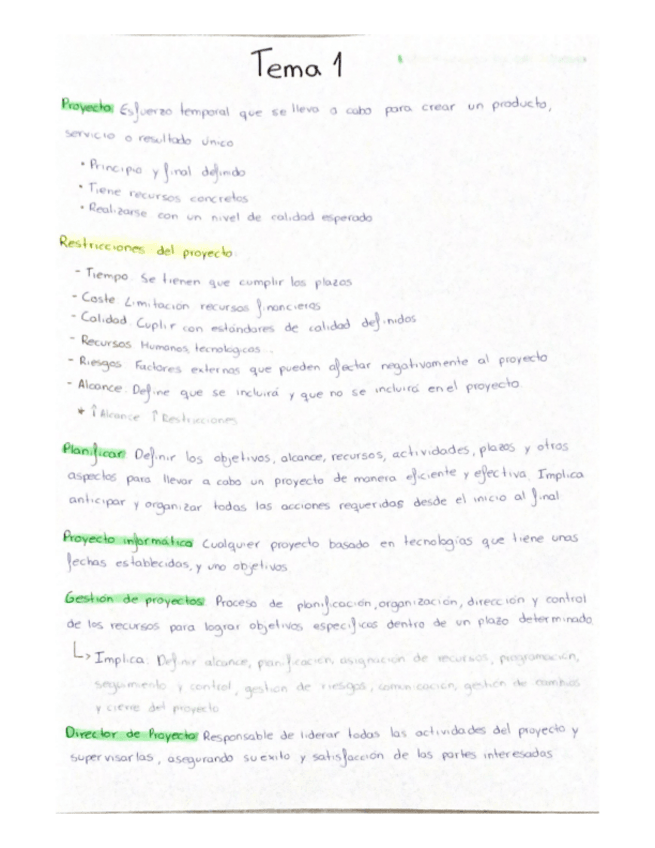 Tema 1
Proyecto: Esfuerzo temporal que se lleva a cabo para crear un producto,
servicio o resultado único
• Principio y final definido
• Tiene recursos concretos
• Realizarse con un nivel de calidad esperado
Restricciones del proyecto:
- Tiempo: Se tienen que cumplir los plazos
- Coste: Limitación recursos financieros
- Calidad: Cuplir con estándares de calidad definidos
- Recursos: Humanos, tecnológicos...
- Riesgos: Factores externos que pueden afectar negativamente al proyecto
- Alcance: Define que se incluirá y que no se incluirá en el proyecto
* ↑ Alcance ↑ Restricciones
Planificar: Definir los objetivos, alcance, recursos, actividades, plazos y otros
aspectos para llevar a cabo un proyecto de manera eficiente y efectiva. Implica
anticipar y organizar todas las acciones requeridas desde el inicio al final
Proyecto informático: Cualquier proyecto basado en tecnologías que tiene unas
fechas establecidas, y uno objetivos
Gestión de proyectos: Proceso de planificación, organización, dirección y control
de los recursos para lograr objetivos específicos dentro de un plazo determinado
↳ Implica: Definir alcance, planificación, asignación de recursos, programación,
seguimiento y control, gestión de riesgos, comunicación, gestión de cambios
y cierre del proyecto
Director de Proyecto: Responsable de liderar todas las actividades del proyecto y
supervisarlas, asegurando su exito y satisfacción de las partes interesadas